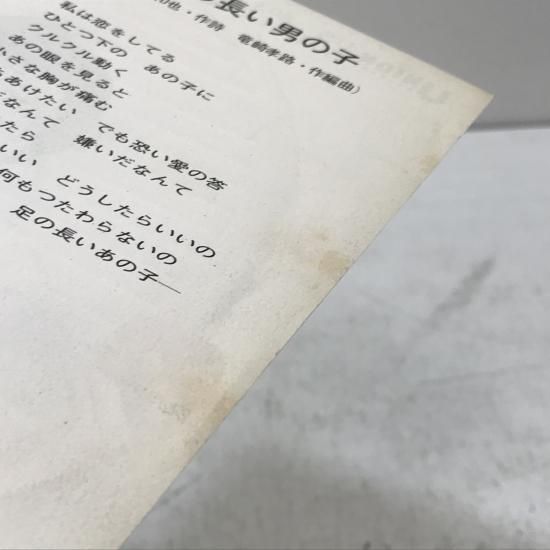 の長い男の子
也・作詩　竜崎孝路・作編曲）
私は恋をしてる
ひとつ下の　あの子に
クルクル動く
あの眼を見ると
小さな胸が痛む
あけたい　でも恐い愛の答
なんて　嫌いだなんて
たら
いい　どうしたらいいの
何もつたわらないの
足の長いあの子―